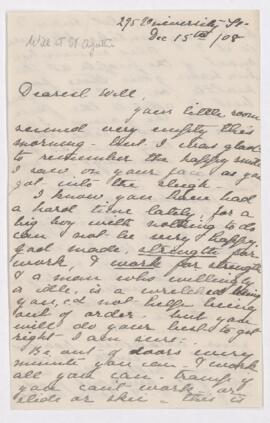 295 University St.
Dec 15th/08
Will at St Agathe
Dearest Will,
your little room
seemed very empty this
morning – but I was glad
to remember the happy smile
I saw on your face as you
got into the sleigh –
I know you have had
a hard time lately: for a
big boy with nothing to do
can not be very happy.
God made strength for
work, & work for strength
& a man who willingly
is idle, is a wretched thing
you, cd not help being
out of order – but you
will do your best to get
right – I am sure:
Be out of doors every
minute you can – & work
all you can – tramp if
you can't work or
slide or skii – this is